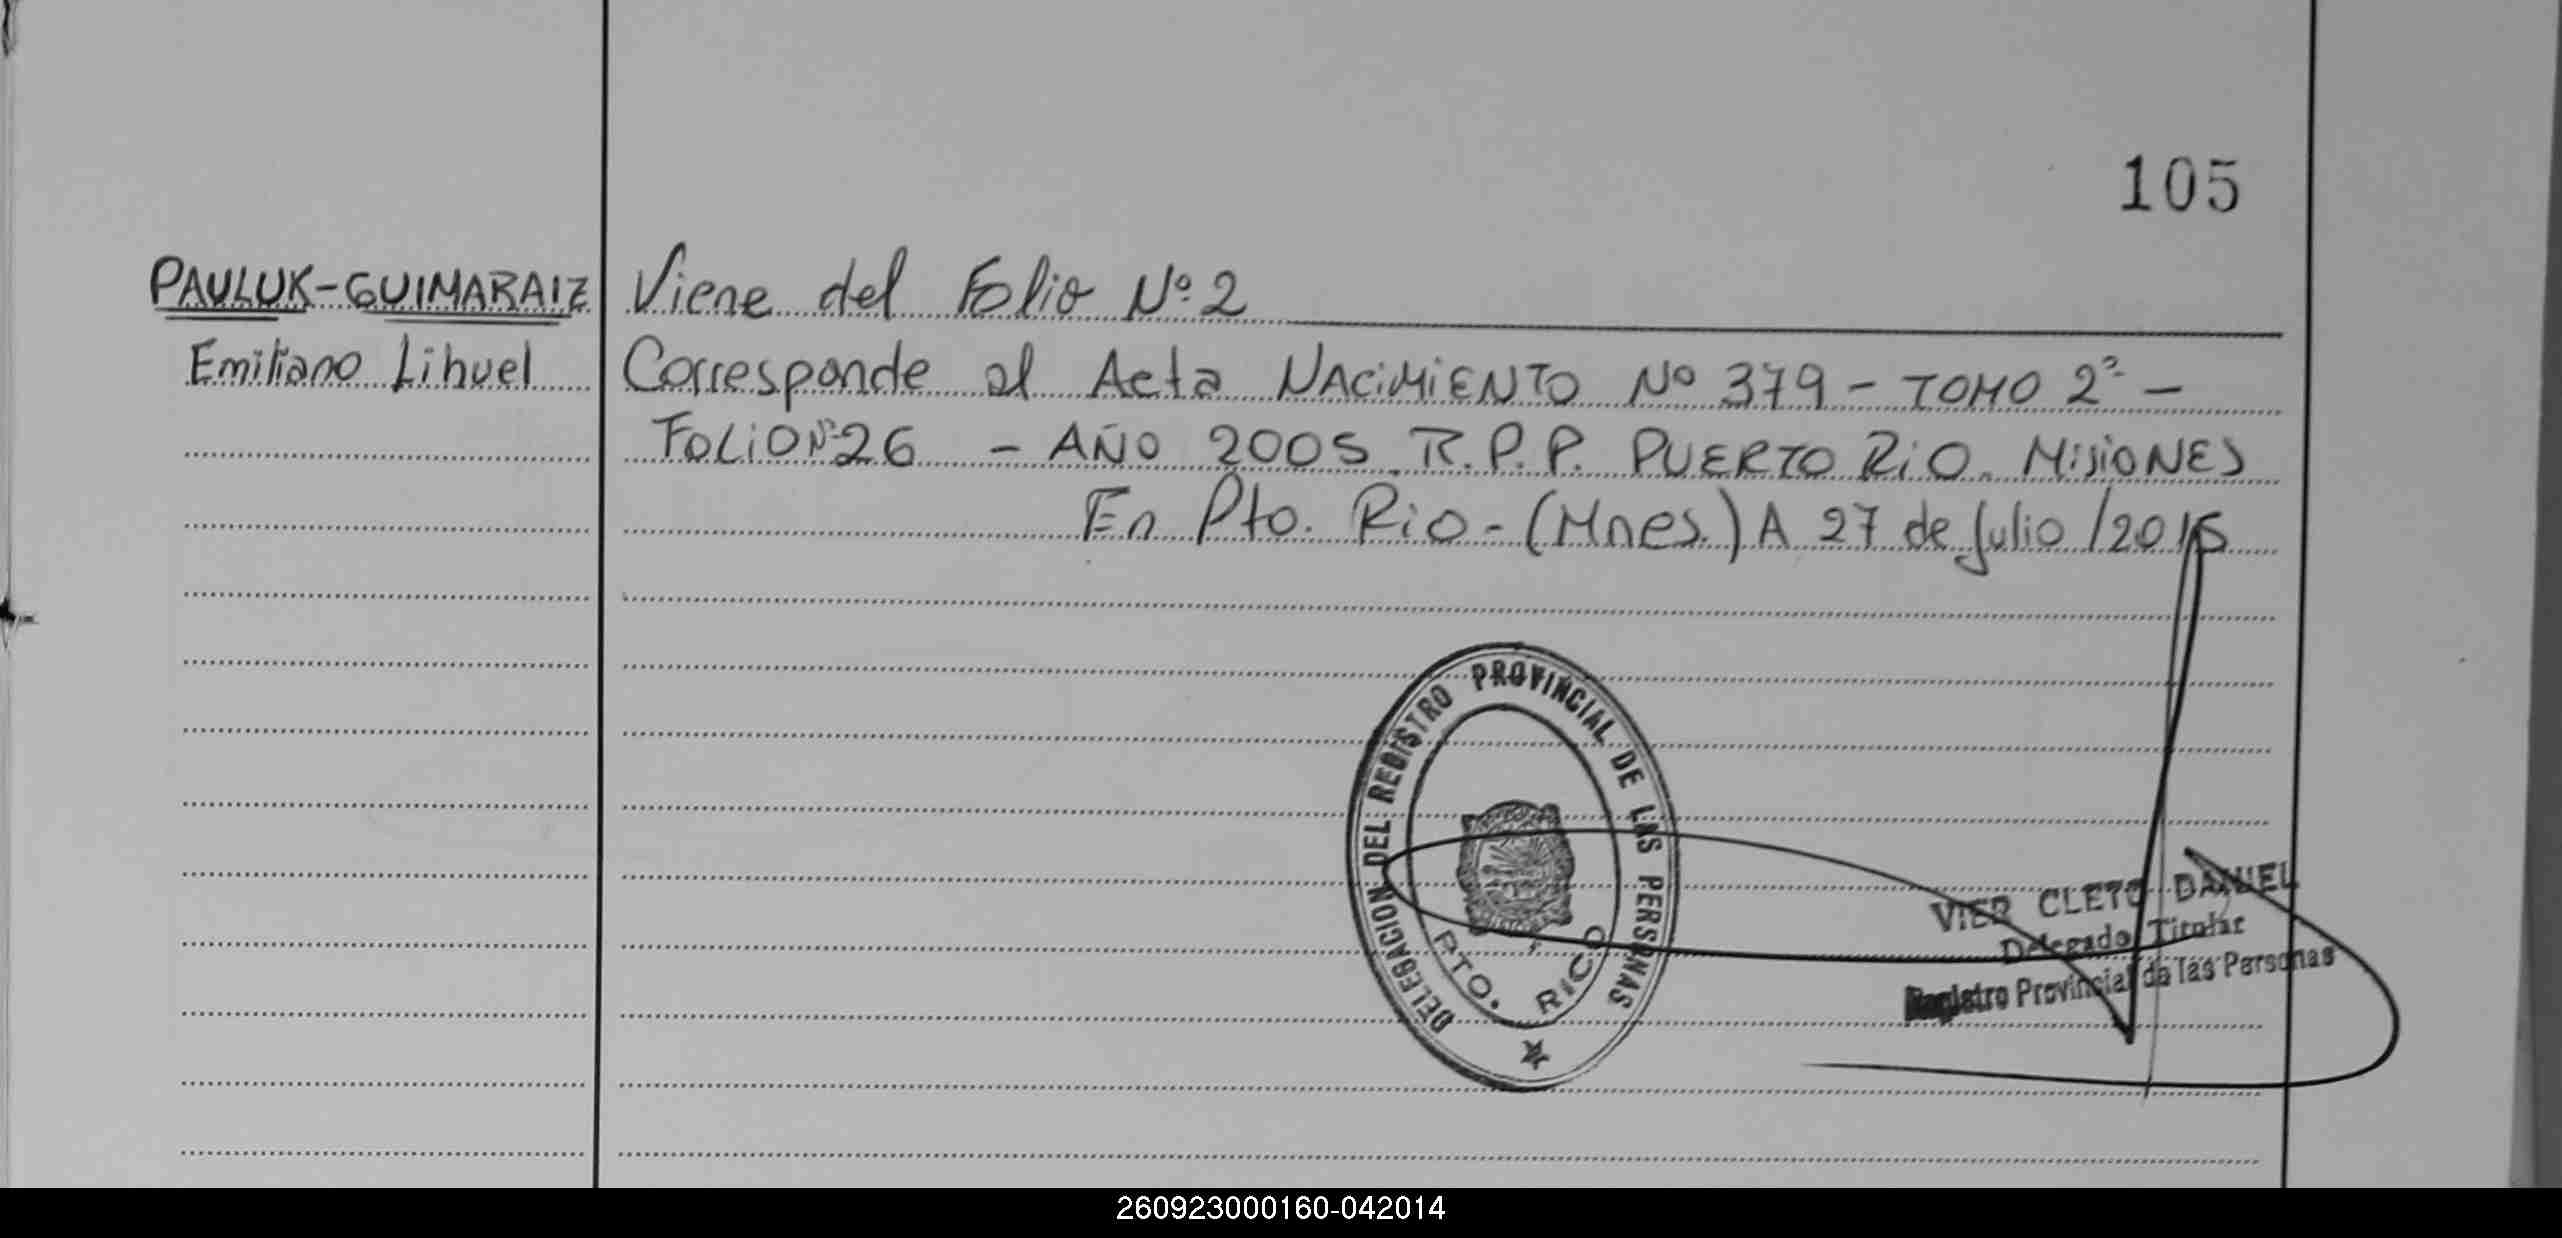 105
PAULUK-GUIMARAIZ
Emiliano Lihuel
Viene del Folio Nº 2
Corresponde al Acta NACIMIENTO Nº 379 - TOMO 2º -
FOLIO Nº 26 - AÑO 2005. R.P.P. PUERTO RICO. MISIONES
En Pto. Rico - (Mnes.) A 27 de Julio /2015
DELEGACION DEL REGISTRO PROVINCIAL DE LAS PERSONAS
PTO. RICO
VIER CLETO DANIEL
Delegado Titular
Registro Provincial de las Personas
260923000160-042014